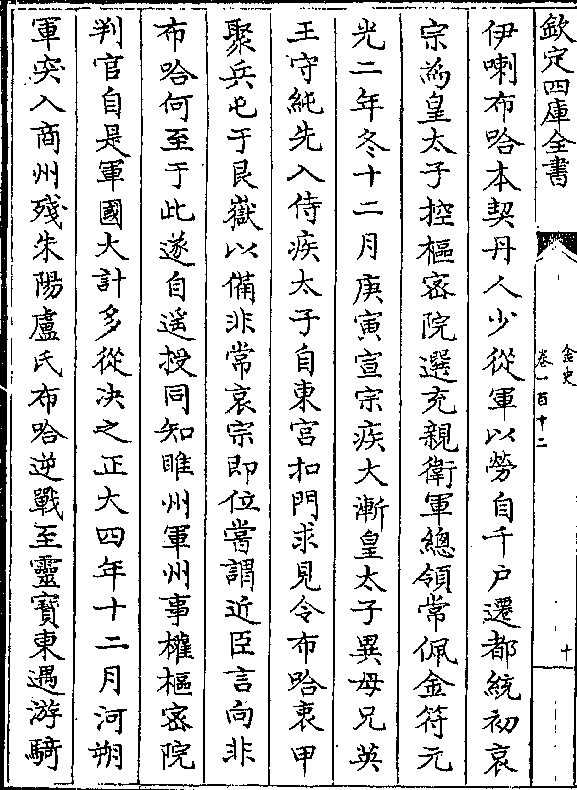 欽定四庫全書
金史
卷一百十二
十
伊喇布哈本契丹人少從軍以勞自千户遷都統初哀
宗為皇太子控樞密院選充親衛軍總領常佩金符元
光二年冬十二月庚寅宣宗疾大漸皇太子異母兄英
王守純先入侍疾太子自東宮扣門求見令布哈衷甲
聚兵屯于艮嶽以備非常哀宗即位嘗謂近臣言向非
布哈何至于此遂自遥授同知睢州軍州事權樞密院
判官自是軍國大計多從决之正大四年十二月河朔
軍突入商州殘朱陽盧氏布哈逆戰至靈寶東遇游騎